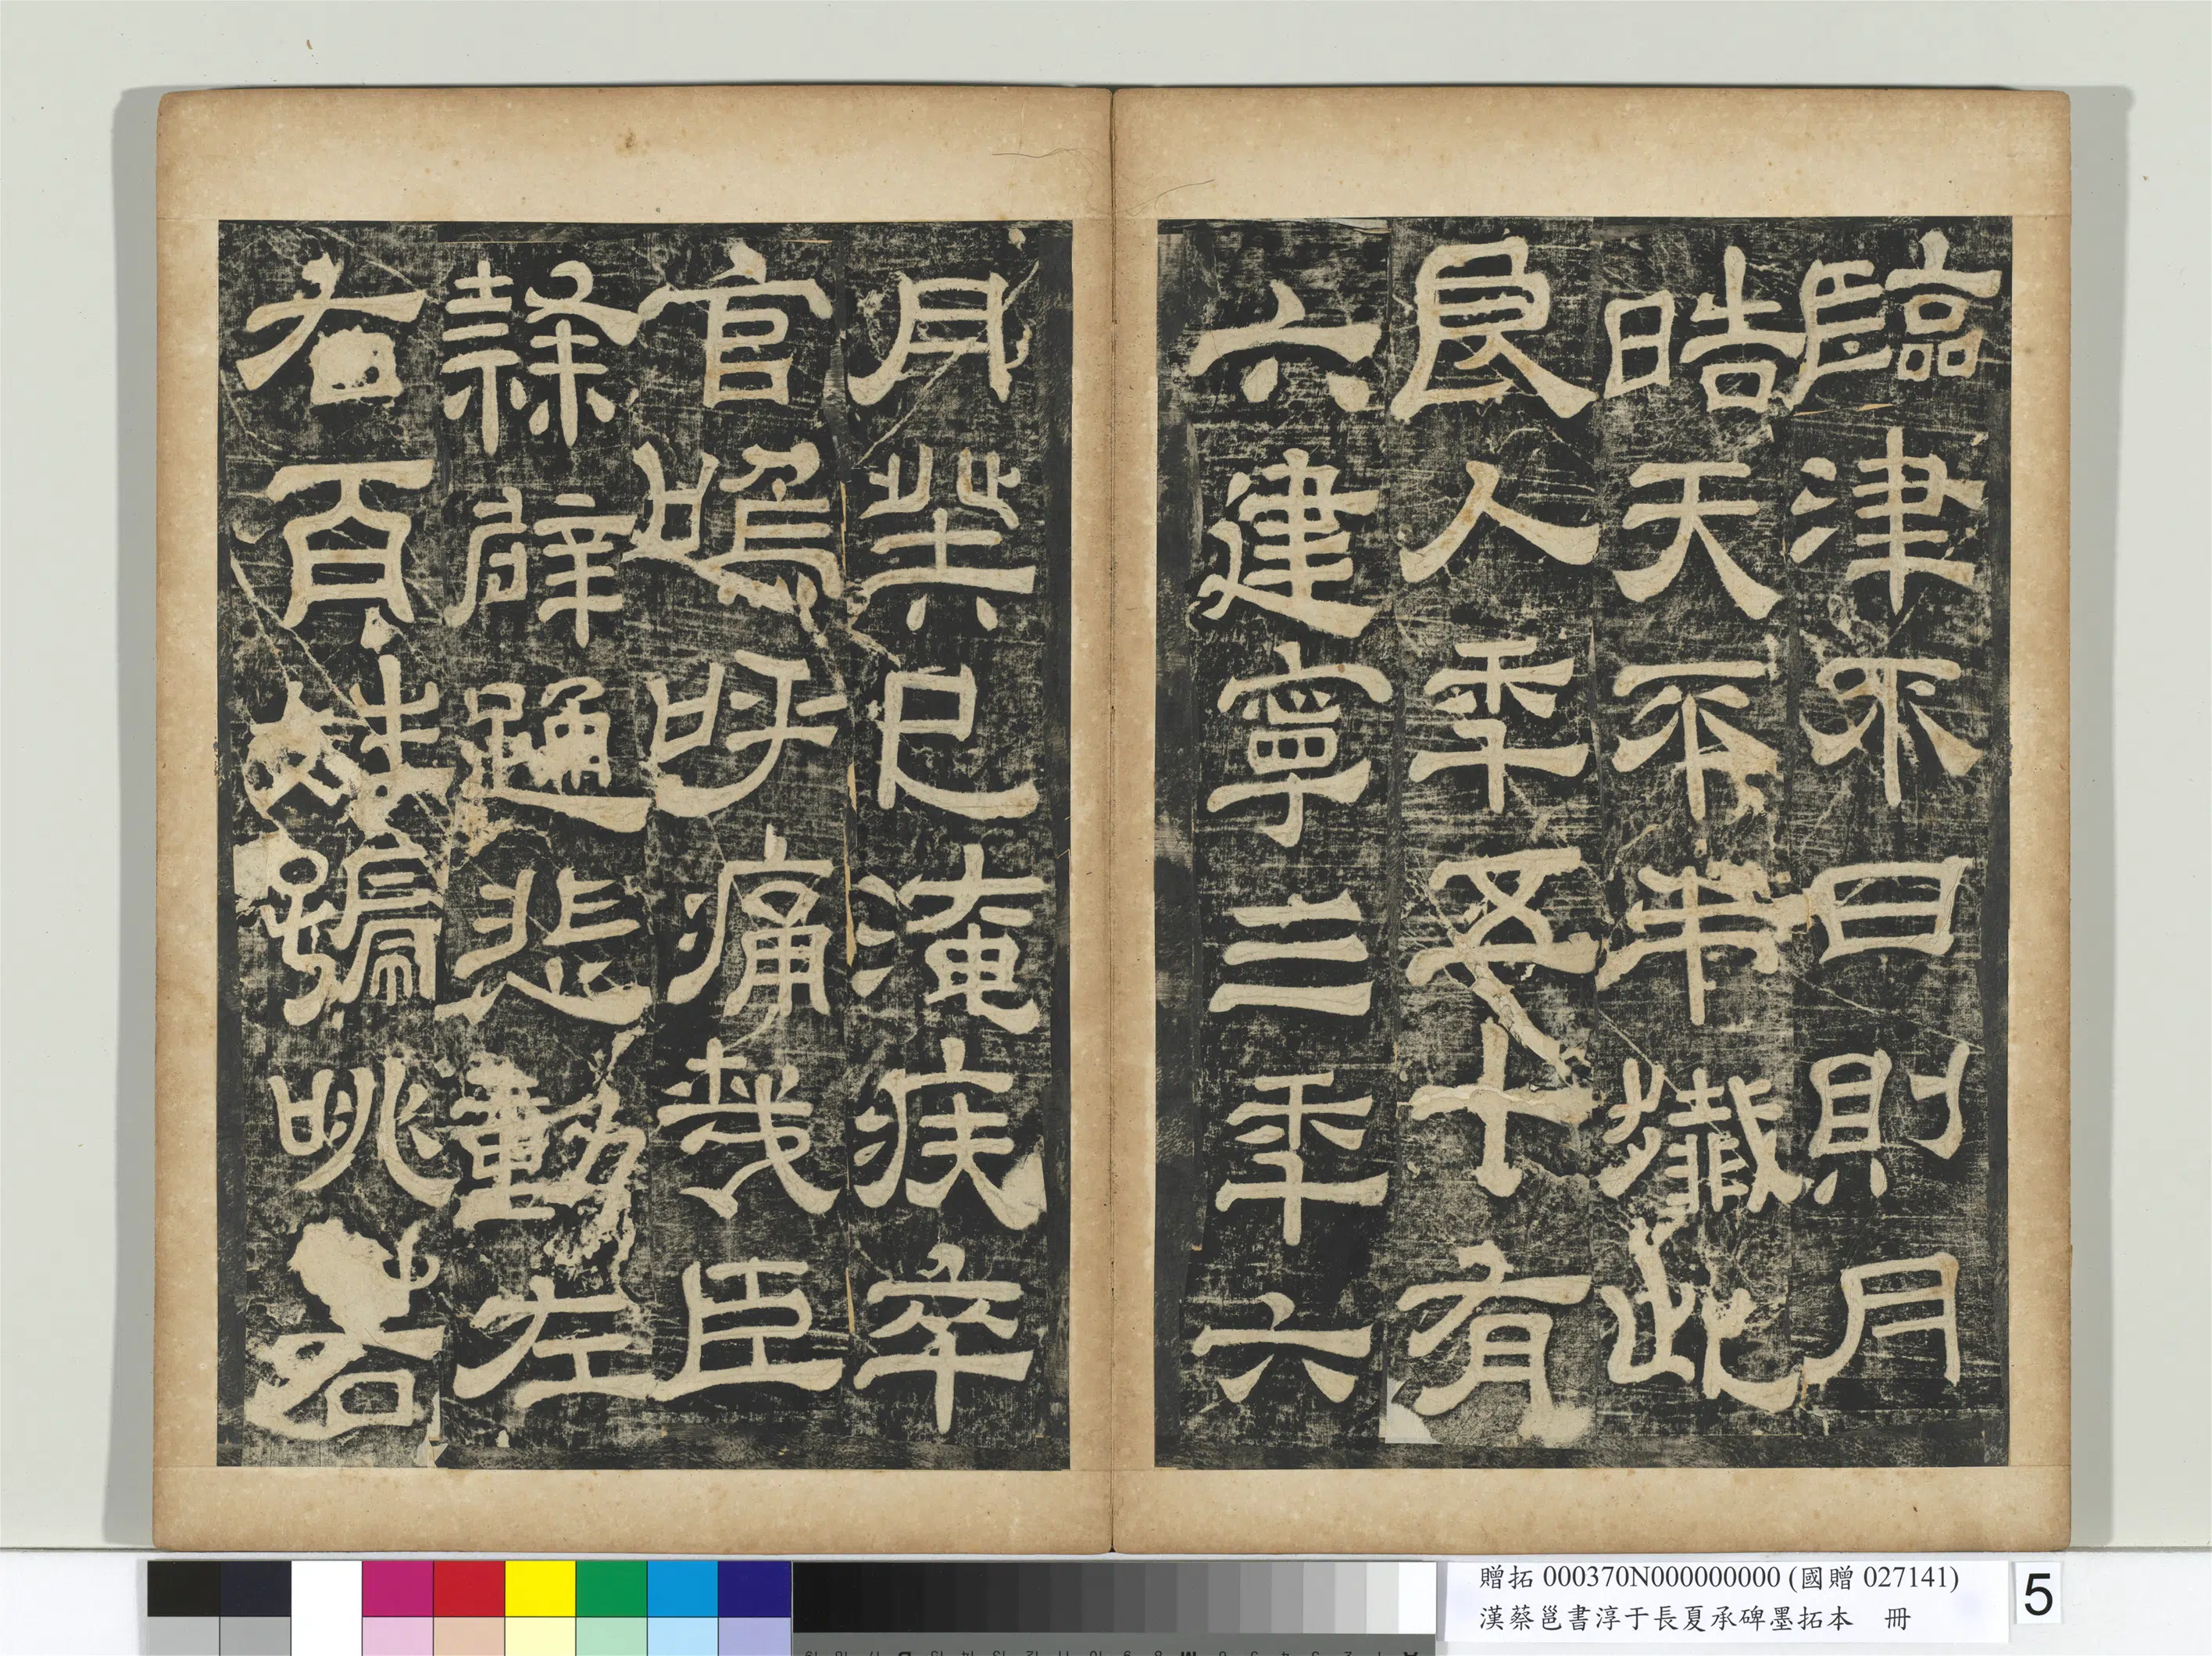 臨津不日則月
晧天不弔殲此
良人年五十有
六建寧三年六
月癸巳淹疾卒
官嗚呼痛哉臣
隸辟踊悲動左
右百姓號咷若
贈拓 000370N000000000 (國贈 027141)
漢蔡邕書淳于長夏承碑墨拓本 冊
5